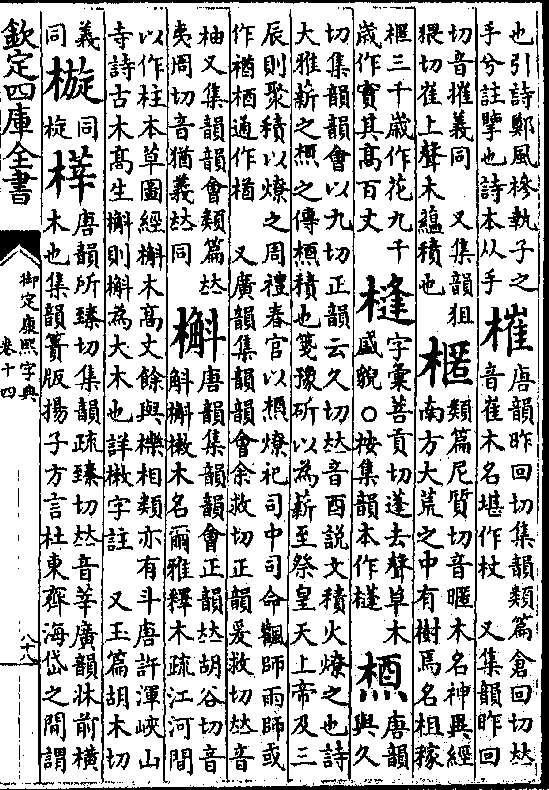 也引詩鄭風摻執子之
手兮註擥也詩本从手
槯
唐韻昨回切集韻類篇倉回切𠀤
音崔木名堪作杖 又集韻昨回
切音摧義同 又集韻狙
猥切崔上聲木藴積也
類篇尼質切音暱木名神異經
南方大荒之中有樹焉名柤稼
三千歲作花九千
歲作實其髙百丈
槰
字彙菩貢切蓬去聲草木
盛貌○按集韻本作
槱
唐韻
與久
切集韻韻會以九切正韻云久切𠀤音酉說文積火燎之也詩
大雅薪之槱之傳槱積也箋豫斫以為薪至祭皇天上帝及三
辰則聚積以燎之 周禮春官以槱燎祀司中司命飌師雨師或
作禉梄通作楢 又廣韻集韻韻會余救切正韻爰救切𠀤音
柚又集韻韻會類篇𠀤
夷周切音猶義𠀤同
槲
唐韻集韻韻會正韻𠀤胡谷切音
斛槲樕木名爾雅釋木疏江河間
以作柱本草圖經槲木髙丈餘與櫟相類亦有斗唐許渾峽山
寺詩古木髙生槲則槲為大木也詳樕字註 又玉篇胡木切
義
同
同
唐韻所臻切集韻疏臻切𠀤音莘廣韻牀前橫
木也集韻簀版揚子方言杜東齊海岱之間謂
欽定四庫全書
御定康熙字典
卷十四
八十八